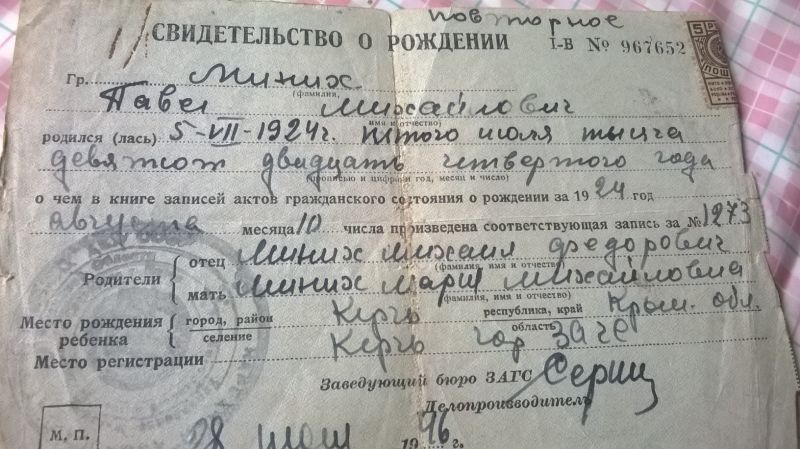 повторное
СВИДЕТЕЛЬСТВО О РОЖДЕНИИ I-В № 967652
Гр. Миних
(фамилия,
Павел Михайлович
имя и отчество)
родился (лась) 5-VII-1924г. пятого июля тысяча
девятсот двадцать четвертого года
(прописью и цифрами год, месяц и число)
о чем в книге записей актов гражданского состояния о рождении за 1924 год
августа месяца 10 числа произведена соответствующая запись за № 1273
Родители
отец Миних Михаил Федорович
(фамилия, имя и отчество)
мать Миних Мария Михайловна
(фамилия, имя и отчество)
Место рождения ребенка
город, район Керчь республика, край Крым. обл.
селение область
Место регистрации Керчь гор ЗАГС
Заведующий бюро ЗАГС
Делопроизводитель
М. П. 28 1946 г.